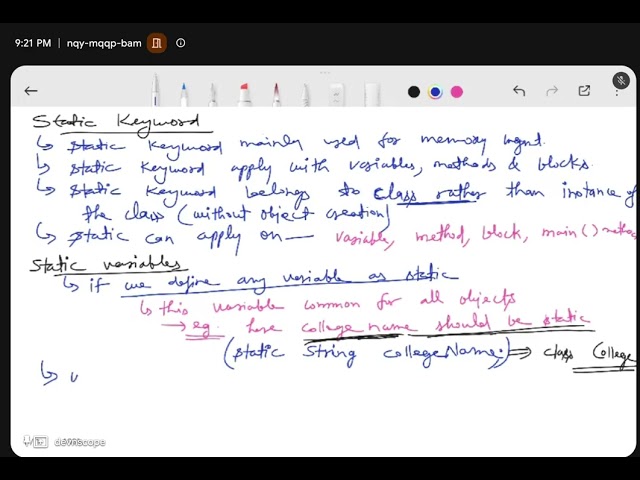 9:21 PM | nqy-mqqp-bam
Static Keyword
↳ static keyword mainly used for memory mgnt.
↳ static keyword apply with variables, methods & blocks.
↳ static keyword belongs to class rather than instance of
the class (without object creation)
↳ static can apply on — variable, method, block, main() metho
Static variables
↳ if we define any variable as static
↳ this variable common for all objects
→ eg. here college name should be static
(static String collegeName;) ⇒ class College
↳
devriscope